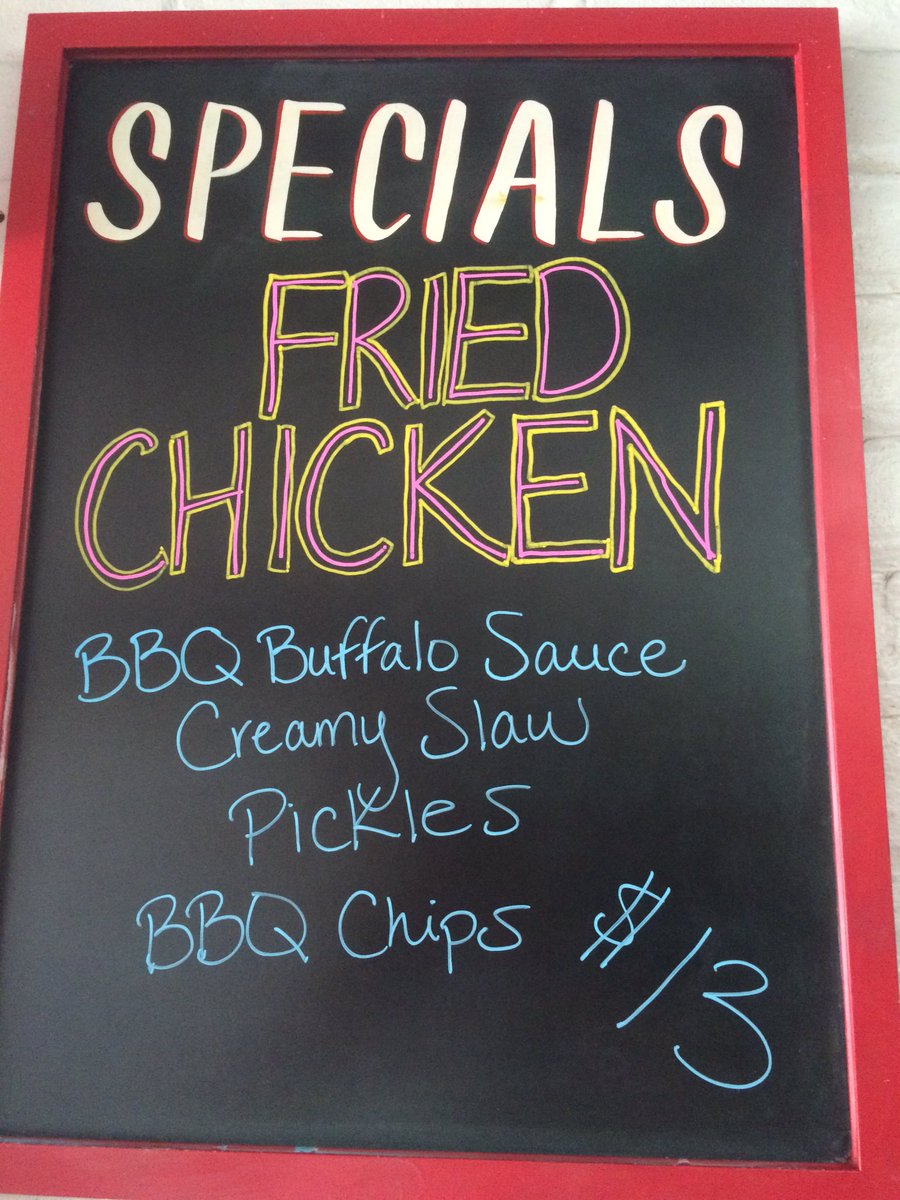 SPECIALS
FRIED
CHICKEN
BBQ Buffalo Sauce
Creamy Slaw
Pickles
BBQ Chips $13